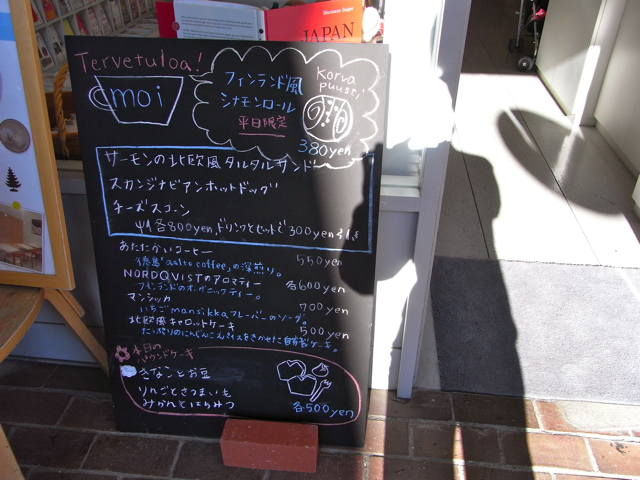 JAPAN
Tervetuloa!
moi
フィンランド風
シナモンロール
平日限定
Korva
puusti
380yen
サーモンの北欧風タルタルサンド
スカンジナビアンホットドッグ
チーズスコーン
各800yen,ドリンクとセットで300yen引き
あたたかいコーヒー 550yen
徳島"aalto coffee"の深煎り。
NORDQVISTのアロマティー 各600yen
フィンランドのオーガニックティー。
マンシッカ 700yen
いちごmansikkaフレーバーのソーダ。
北欧風キャロットケーキ 500yen
たっぷりのにんじんとスパイスをきかせた自家製ケーキ。
本日の
パウンドケーキ
きなことお豆
りんごとさつまいも
みかんとはちみつ
各500yen